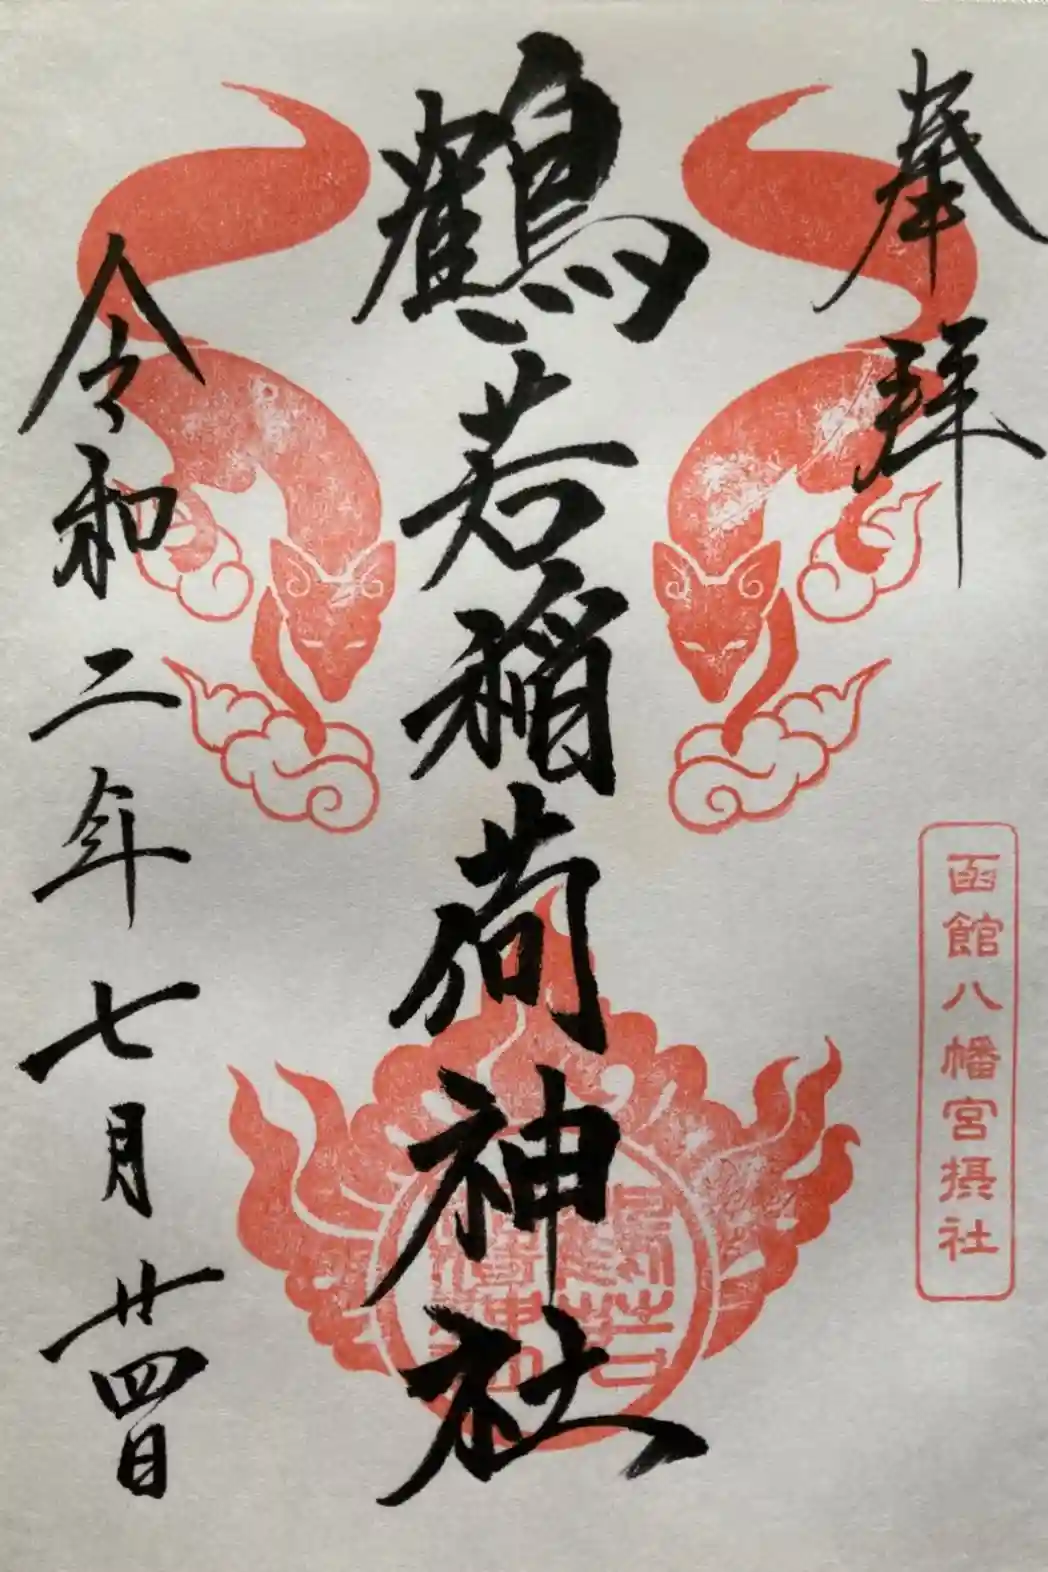 奉拝
函館八幡宮摂社
鶴若稲荷神社
令和二年七月廿四日